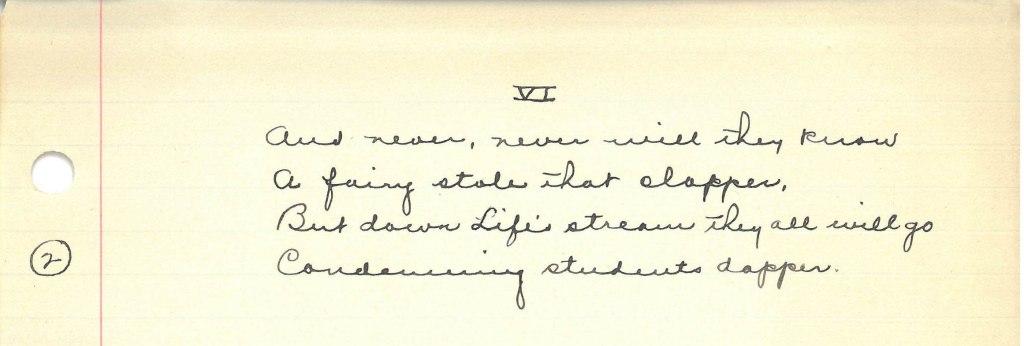 VI
And never, never will they know
A fairy stole that clapper,
But down Life's stream they all will go
Condemning students dapper.
2